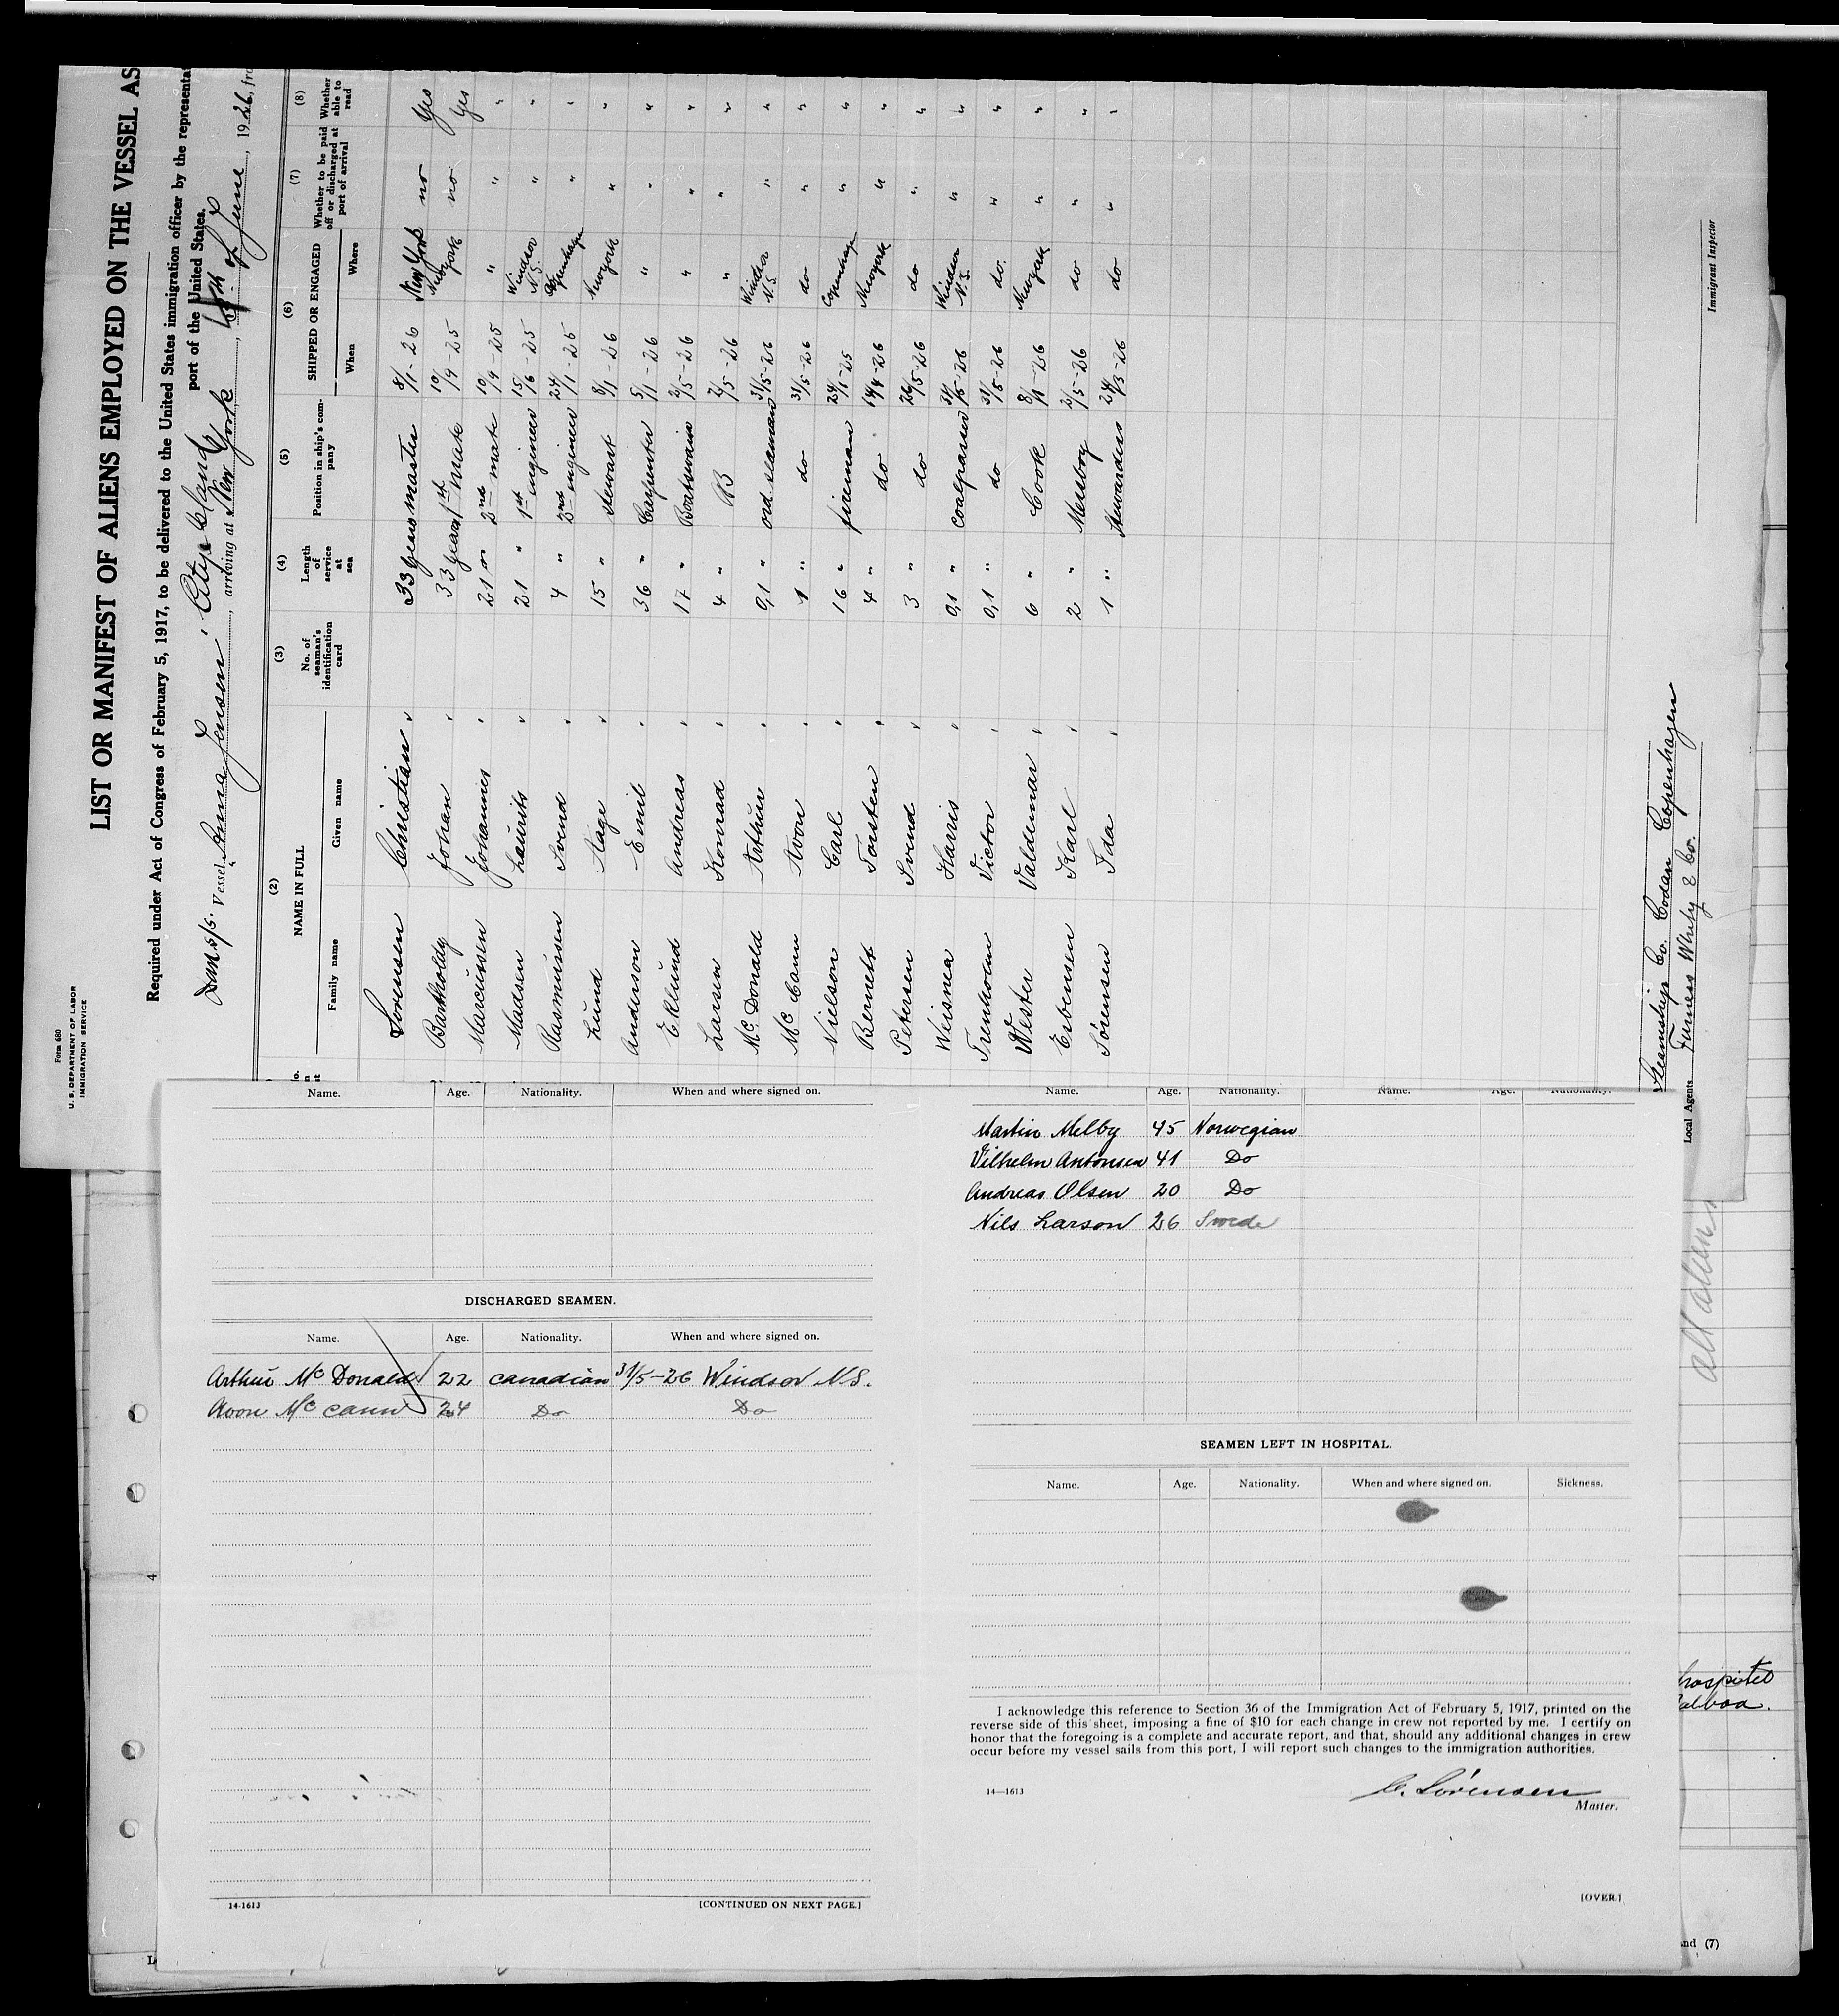 Form 680
U. S. DEPARTMENT OF LABOR
IMMIGRATION SERVICE
LIST OR MANIFEST OF ALIENS EMPLOYED ON THE VESSEL AS
Required under Act of Congress of February 5, 1917, to be delivered to the United States immigration officer by the representa
port of the United States.
Dan. s/s. Vessel Anna Jensen, arriving at New York, of June, 1926, fro
(2) (3) (4) (5) (6) (7) (8)
NAME IN FULL No. of seaman's identification card Length of service at sea Position in ship's company SHIPPED OR ENGAGED Whether to be paid off or discharged at port of arrival Whether able to read
Family name Given name When Where
Sorensen Christian 33 years master 8/1-26 New York no yes
Bartholdy Johan 33 years 1st mate 10/9-25 Newyork no yes
Marcussen Johannes 21 " 2nd mate 10/9-25 " " "
Madsen Laurits 21 " 1st engineer 15/6-25 Windsor N.S. " "
Rasmussen Svend 4 " 2nd engineer 24/1-25 Copenhagen " "
Lund Aage 15 " stewart 8/1-26 Newyork " "
Anderson Emil 36 " Carpenter 5/1-26 " " "
Eklund Andreas 17 " Boatswain 2/5-26 " " "
Larsen Konrad 4 " AB 2/5-26 " " "
Mc Donald Arthur 0,1 " ord seaman 31/5-26 Windsor N.S. " "
Mc Cann Avon 1 " do 31/5-26 do " "
Nielson Carl 16 " fireman 24/1-25 Copenhage " "
Bernett Torsten 4 " do 14/4-26 Newyork " "
Petersen Svend 3 " do 26/5-26 do " "
Weisnea Harris 0,1 " coalpasser 31/5-26 Windsor N.S. " "
Trenholm Victor 0,1 " do 31/5-26 do. " "
Wester Valdemar 6 " Cook 8/1-26 Newyork " "
Erbensen Karl 2 " Messboy 2/5-26 do " "
Sørensen Ida 1 " Stewardess 24/3-26 do " "
Immigrant Inspector
Steamship Co. Codan Copenhagen
Local Agents Furness Withy & Co.
Name. Age. Nationality. When and where signed on.
DISCHARGED SEAMEN.
Name. Age. Nationality. When and where signed on.
Arthur Mc Donald 22 canadian 31/5-26 Windsor N.S.
Avon Mc cann 24 Do Do
14-1613 [CONTINUED ON NEXT PAGE.]
Name. Age. Nationality. Name. Age. Nationality.
Martin Melby 45 Norwegian
Vilhelm Antonsen 41 Do
Andreas Olsen 20 Do
Nils Larson 26 Swede
SEAMEN LEFT IN HOSPITAL.
Name. Age. Nationality. When and where signed on. Sickness.
I acknowledge this reference to Section 36 of the Immigration Act of February 5, 1917, printed on the
reverse side of this sheet, imposing a fine of $10 for each change in crew not reported by me. I certify on
honor that the foregoing is a complete and accurate report, and that, should any additional changes in crew
occur before my vessel sails from this port, I will report such changes to the immigration authorities.
14—1613
C. Sörensen
Master.
[OVER.]
all aliens
hospital
alboa.
4
nd (7)